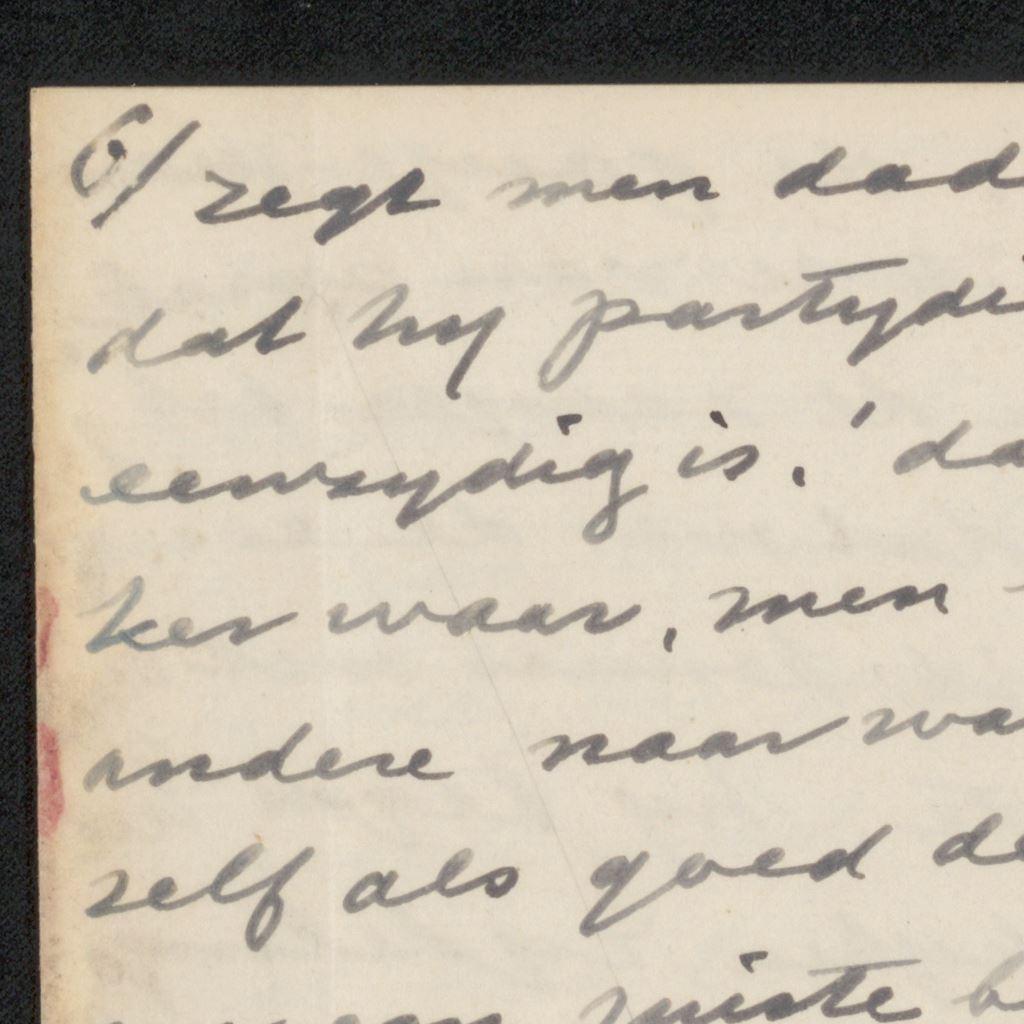 6/ zegt men dad
dat hy partydi
eenzydig is. ' da
ker waar, men
andere naar wa
zelf als goed de
een juiste b